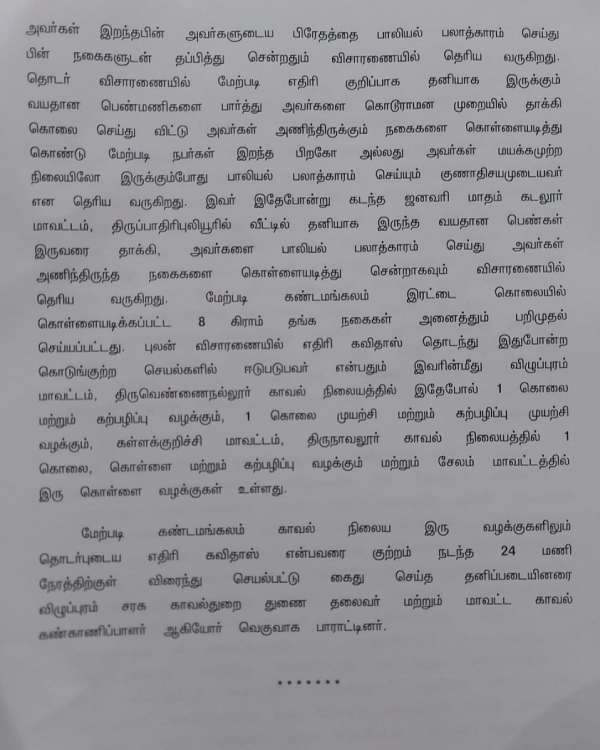 அவர்கள் இறந்தபின் அவர்களுடைய பிரேதத்தை பாலியல் பலாத்காரம் செய்து
பின் நகைகளுடன் தப்பித்து சென்றதும் விசாரணையில் தெரிய வருகிறது.
தொடர் விசாரணையில் மேற்படி எதிரி குறிப்பாக தனியாக இருக்கும்
வயதான பெண்மணிகளை பார்த்து அவர்களை கொடூராமன முறையில் தாக்கி
கொலை செய்து விட்டு அவர்கள் அணிந்திருக்கும் நகைகளை கொள்ளையடித்து
கொண்டு மேற்படி நபர்கள் இறந்த பிறகோ அல்லது அவர்கள் மயக்கமுற்ற
நிலையிலோ இருக்கும்போது பாலியல் பலாத்காரம் செய்யும் குணாதிசயமுடையவர்
என தெரிய வருகிறது. இவர் இதேபோன்று கடந்த ஜனவரி மாதம் கடலூர்
மாவட்டம், திருப்பாதிரிபுலியூரில் வீட்டில் தனியாக இருந்த வயதான பெண்கள்
இருவரை தாக்கி, அவர்களை பாலியல் பலாத்காரம் செய்து அவர்கள்
அணிந்திருந்த நகைகளை கொள்ளையடித்து சென்றாகவும் விசாரணையில்
தெரிய வருகிறது. மேற்படி கண்டமங்கலம் இரட்டை கொலையில்
கொள்ளையடிக்கப்பட்ட 8 கிராம் தங்க நகைகள் அனைத்தும் பறிமுதல்
செய்யப்பட்டது. புலன் விசாரணையில் எதிரி கவிதாஸ் தொடந்து இதுபோன்ற
கொடுங்குற்ற செயல்களில் ஈடுபடுபவர் என்பதும் இவரின்மீது விழுப்புரம்
மாவட்டம், திருவெண்ணைநல்லூர் காவல் நிலையத்தில் இதேபோல் 1 கொலை
மற்றும் கற்பழிப்பு வழக்கும், 1 கொலை முயற்சி மற்றும் கற்பழிப்பு முயற்சி
வழக்கும், கள்ளக்குறிச்சி மாவட்டம், திருநாவலூர் காவல் நிலையத்தில் 1
கொலை, கொள்ளை மற்றும் கற்பழிப்பு வழக்கும் மற்றும் சேலம் மாவட்டத்தில்
இரு கொள்ளை வழக்குகள் உள்ளது.
மேற்படி கண்டமங்கலம் காவல் நிலைய இரு வழக்குகளிலும்
தொடர்புடைய எதிரி கவிதாஸ் என்பவரை குற்றம் நடந்த 24 மணி
நேரத்திற்குள் விரைந்து செயல்பட்டு கைது செய்த தனிப்படையினரை
விழுப்புரம் சரக காவல்துறை துணை தலைவர் மற்றும் மாவட்ட காவல்
கண்காணிப்பாளர் ஆகியோர் வெகுவாக பாராட்டினர்.
*******